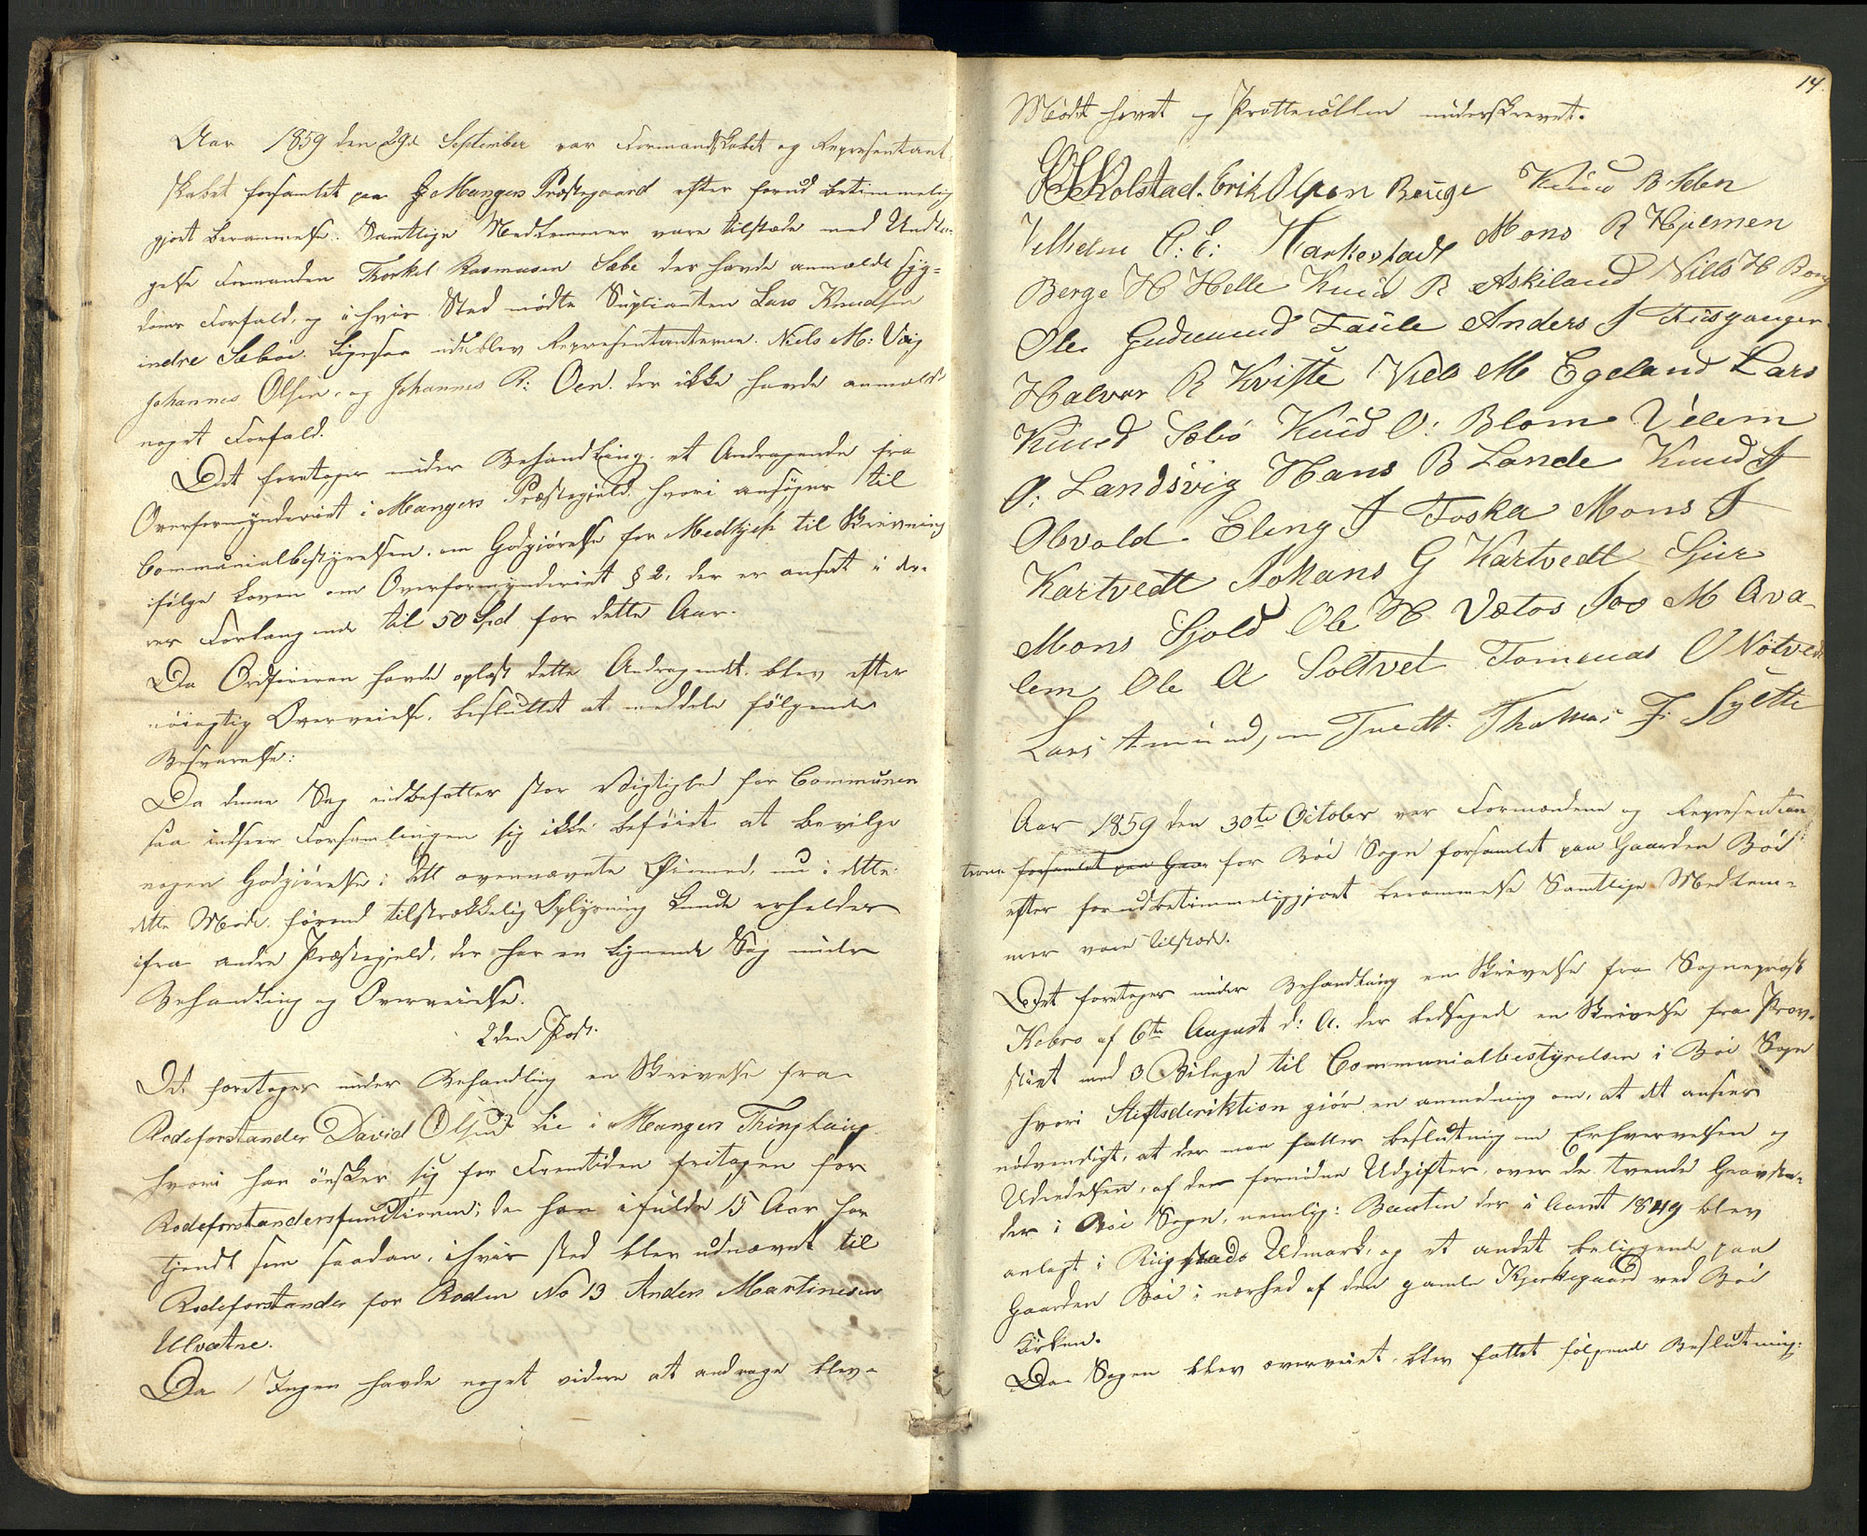 Aar 1859 den 29de September var Formandskabet og Repræsentant-
skabet forsamlet paa Mangers Præstegaard efter forud betimmelig
gjort Berammelse. Samtlige Medlemmer vare tilstæde med Undta-
gelse Formanden Thorkel Rasmusen Sæbø der havde anmældt Syg-
doms Forfald, og i hvis Sted mødte Suplianten Lars Knudsen
indre Sæbøe. Ligesaa udeblev Repræsentanterne Niels M:
Johannes Olsen, og Johannes R: Oen. der ikke havde anmældt
noget Forfald.
Det foretoges under Behandling et Andragende fra
Overformynderiet i Mangers Præstegjeld, hvori ansøges til
Communialbestyrelsen om Godgjørelse for Medhjelp til Skrivning
ifølge Loven om Overformynderiet § 2, der er ansat i de-
res Forlangende til 50 Spd for dette Aar.
Da Ordføreren havde oplæst dette Andragende blev efter
nøiagtig Overveielse, besluttet at meddele følgende
Besvarelse:
Da denne Sag indbefatter stor Vigtighed for Communen
saa indseer Forsamlingen sig ikke beføiet at bevilge
nogen Godgjørelse i det ovennævnte Øiemed, nu i dette
dette Møde, førend tilstrækkelig Oplysning kunde erholdes
ifra andre Præstegjeld, der har en lignende Sag under
Behandling og Overveielse.
2den Post.
Det foretoges under Behandling en Skrivelse fra
Rodeforstander David Olsen Lie i Mangers Thinglaug
hvori han ønsker sig for Fremtiden fritagen for
Rodeforstandersfunctionen; da han i fulde 15 Aar har
tjendt som saadan, i hvis sted blev udnævnt til
Rodeforstander for Roden No 13 Anders Martinesen
Ulvatne.
Da Ingen havde noget videre at andrage blev
14.
Mødet hævet og Protteollen underskrevet.
Kolstad. Erik Olsen Bøuge Knud B Selen
Vilhelm O: E: Harkestad Mons R Hjelmen
Berge H Helle Knud R Askiland Nils H Borg
Ole Gudmund Taule Anders J Fiusganger
Halvor R Kviste Niels M Egeland Lars
Knud Sæbø Knud O: Blom Velem
O: Landsvig Hans B Lande Knud J
Obvold. Eling J Toska Mons J
Kartvedt Johans G Kartvedt Sjur
Mons Sjold Ole H Vatos Joo M Ava-
lem Ole A Soltvet Tomenas O Nøtved
Lars Amundsen Tvedt. Thomas F: Sylte
Aar 1859 den 30te October var Formændene og Repræsentan-
terne forsamlet paa Gaar for Bøe Sogn forsamlet paa Gaarden Bøe
efter forudbetimmeliggjort berammelse Samtlige Medlem-
mer vare tilstæde.
Det foretoges under Behandling en Skrivelse fra Sogneprest
Kobro af 6te August d: A. der ledsagede en Skrivelse fra Prov-
stiet med 3 Bilage til Communialbestyrelsen i Bøe Sogn
hvori Stiftsderiktion gjør en anmodning om, at det ansees
nødvendigt, at der man fatter beslutning om Erhvervelsen og
Udredelsen, af den fornødne Udgifter, over de tvende Gravste-
der i Bøe Sogn, nemlig: den der i Aaret 1849 blev
anlagt i Udmark, og et andet beliggende paa
Gaarden Bøe i nærhed af den gamle Kjerkegaard ved Bøe
Kirken.
Da Sagen blev overveiet, blev fattet følgende Beslutning: